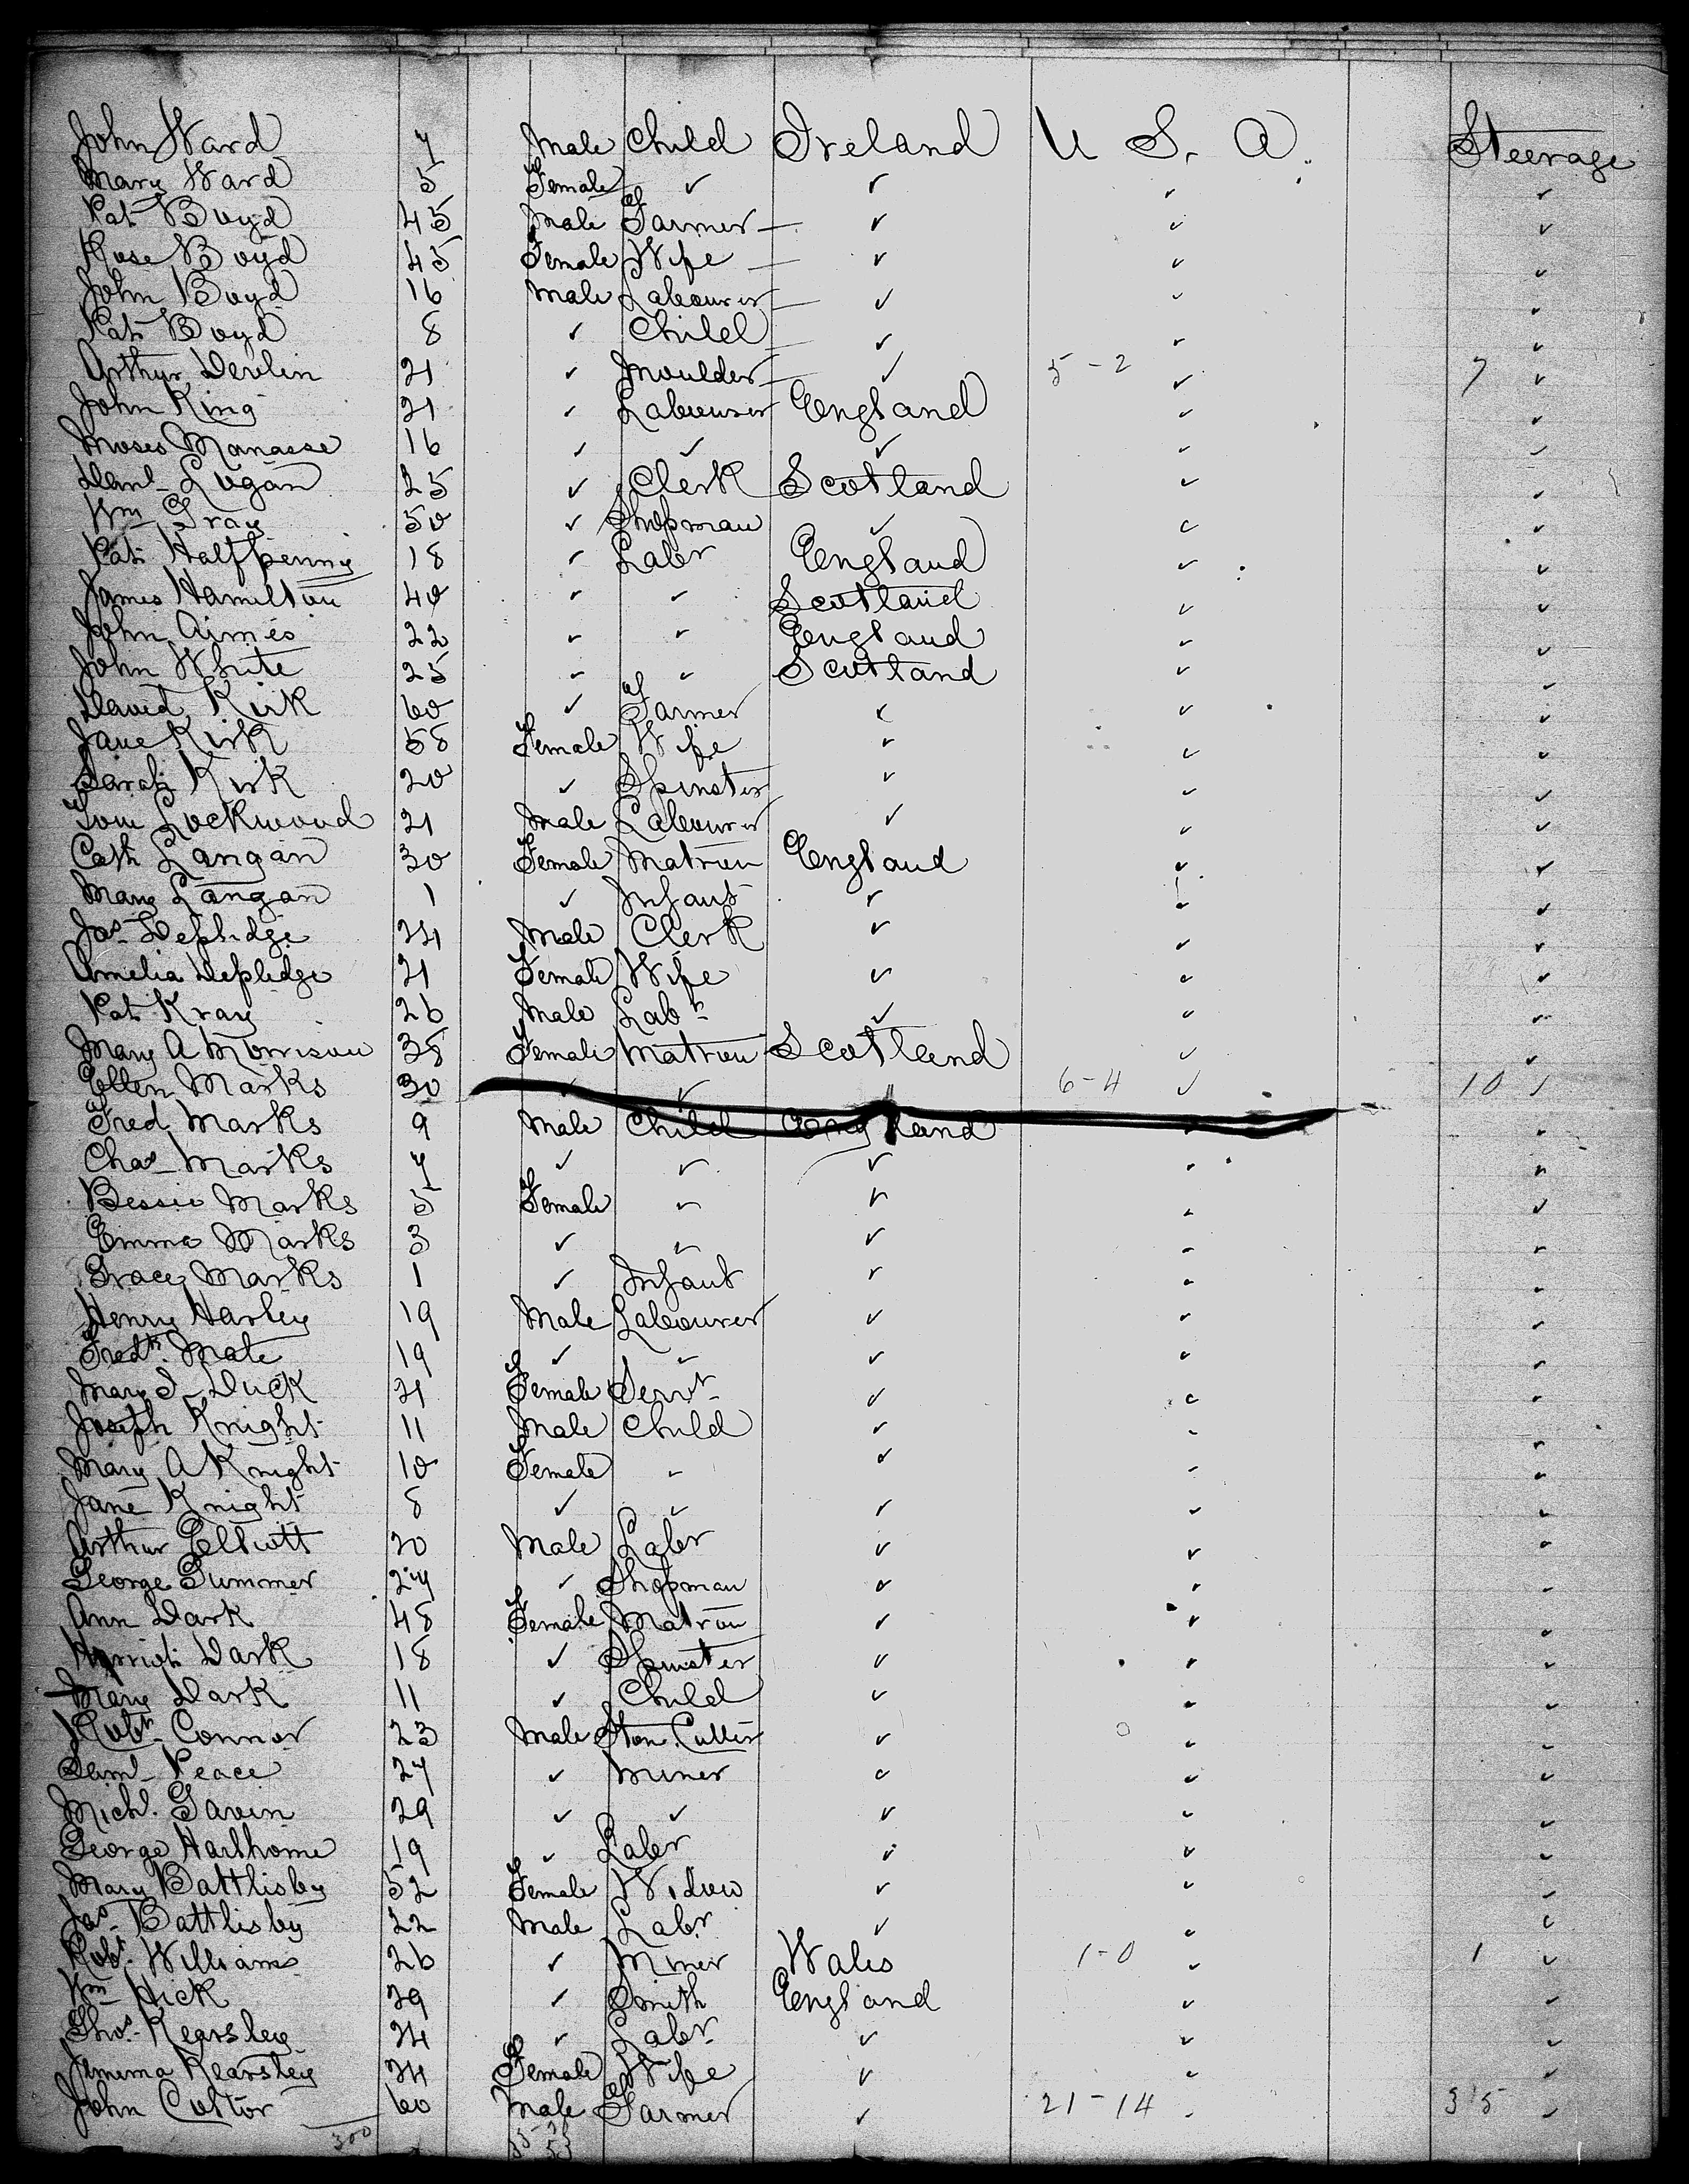 John Ward 7 Male Child Ireland U. S. A. Steerage
Mary Ward 5 Female ✓ ✓ ✓ ✓
Pat Boyd 45 Male Farmer — ✓ ✓ ✓
Rose Boyd 45 Female Wife — ✓ ✓ ✓
John Boyd 16 Male Labourer — ✓ ✓ ✓
Pat Boyd 8 ✓ Child — ✓ ✓ ✓
Arthur Devlin 21 ✓ Moulder — ✓ 5-2 ✓ 7 ✓
John King 21 ✓ Labourer England ✓ ✓
Moses Manasse 16 ✓ ✓ ✓ ✓ ✓
Danl Logan 25 ✓ Clerk Scotland ✓ ✓
Wm Gray 50 ✓ Shopman ✓ ✓ ✓
Pat Halfpenny 18 ✓ Labr England ✓ ✓
James Hamilton 40 ✓ ✓ Scotland ✓ ✓
John Aimes 22 ✓ ✓ England ✓ ✓
John White 25 ✓ ✓ Scotland ✓ ✓
David Kirk 60 ✓ Farmer ✓ ✓ ✓
Jane Kirk 58 Female Wife ✓ ✓ ✓
Sarah Kirk 20 ✓ Spinster ✓ ✓ ✓
Tom Lockwood 21 Male Labourer ✓ ✓ ✓
Cath Langan 30 Female Matron England ✓ ✓
Mary Langan 1 ✓ Infant ✓ ✓ ✓
Jas Depledge 24 Male Clerk ✓ ✓ ✓
Amelia Depledge 21 Female Wife ✓ ✓ ✓
Pat Kray 26 Male Labr ✓ ✓ ✓
Mary A Morrison 38 Female Matron Scotland ✓ ✓
Ellen Marks 30 ✓ ✓ 6-4 ✓ 10 ✓
Fred Marks 9 Male Child England ✓ ✓
Chas Marks 7 ✓ ✓ ✓ ✓ ✓
Bessie Marks 5 Female ✓ ✓ ✓ ✓
Emma Marks 3 ✓ ✓ ✓ ✓ ✓
Grace Marks 1 ✓ Infant ✓ ✓ ✓
Henry Harley 19 Male Labourer ✓ ✓ ✓
Fredk Mate 19 ✓ ✓ ✓ ✓ ✓
Mary J Duck 21 Female Servt ✓ ✓ ✓
Joseph Knight 11 Male Child ✓ ✓ ✓
Mary A Knight 10 Female ✓ ✓ ✓ ✓
Jane Knight 8 ✓ ✓ ✓ ✓ ✓
Arthur Elliott 20 Male Labr ✓ ✓ ✓
George Gummer 27 ✓ Shopman ✓ ✓ ✓
Ann Dark 48 Female Matron ✓ ✓ ✓
Dark 18 ✓ Spinster ✓ ✓ ✓
Mary Dark 11 ✓ Child ✓ ✓ ✓
Robt Connor 23 Male Stone Cutter ✓ ✓ ✓
Saml Peace 27 ✓ Miner ✓ ✓ ✓
Michl Gavin 29 ✓ ✓ ✓ ✓ ✓
George Harthorne 19 ✓ Labr ✓ ✓ ✓
Mary Battlisby 52 Female Widow ✓ ✓ ✓
Jas Battlisby 22 Male Labr ✓ ✓ ✓
Robt Williams 26 ✓ Miner Wales 1-0 ✓ 1 ✓
Wm Hick 29 ✓ Smith England ✓ ✓
Thos Kearsley 24 ✓ Labr ✓ ✓ ✓
Jemima Kearsley 24 Female Wife ✓ ✓ ✓
John Cuttor 60 Male Farmer ✓ 21-14 ✓ 35 ✓
300